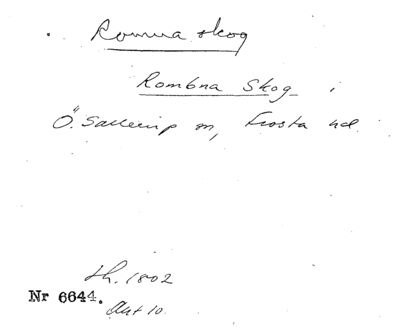 Romma skog
Rombna Skog i
Ö. Sallerup sn, Frosta hd.
th. 1802
Nr 6644.
Akt 10.